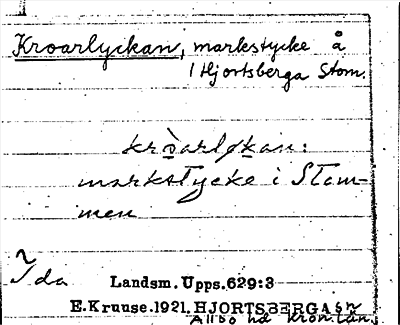 Kroarlyckan, markstycke å
1 Hjortsberga Stom.
kròarlykan:
markstycke i Stom-
men
Ida
Landsm. Upps. 629:3
E. Kruuse. 1921. HJORTSBERGA sn
Allbo hd Kron. län.